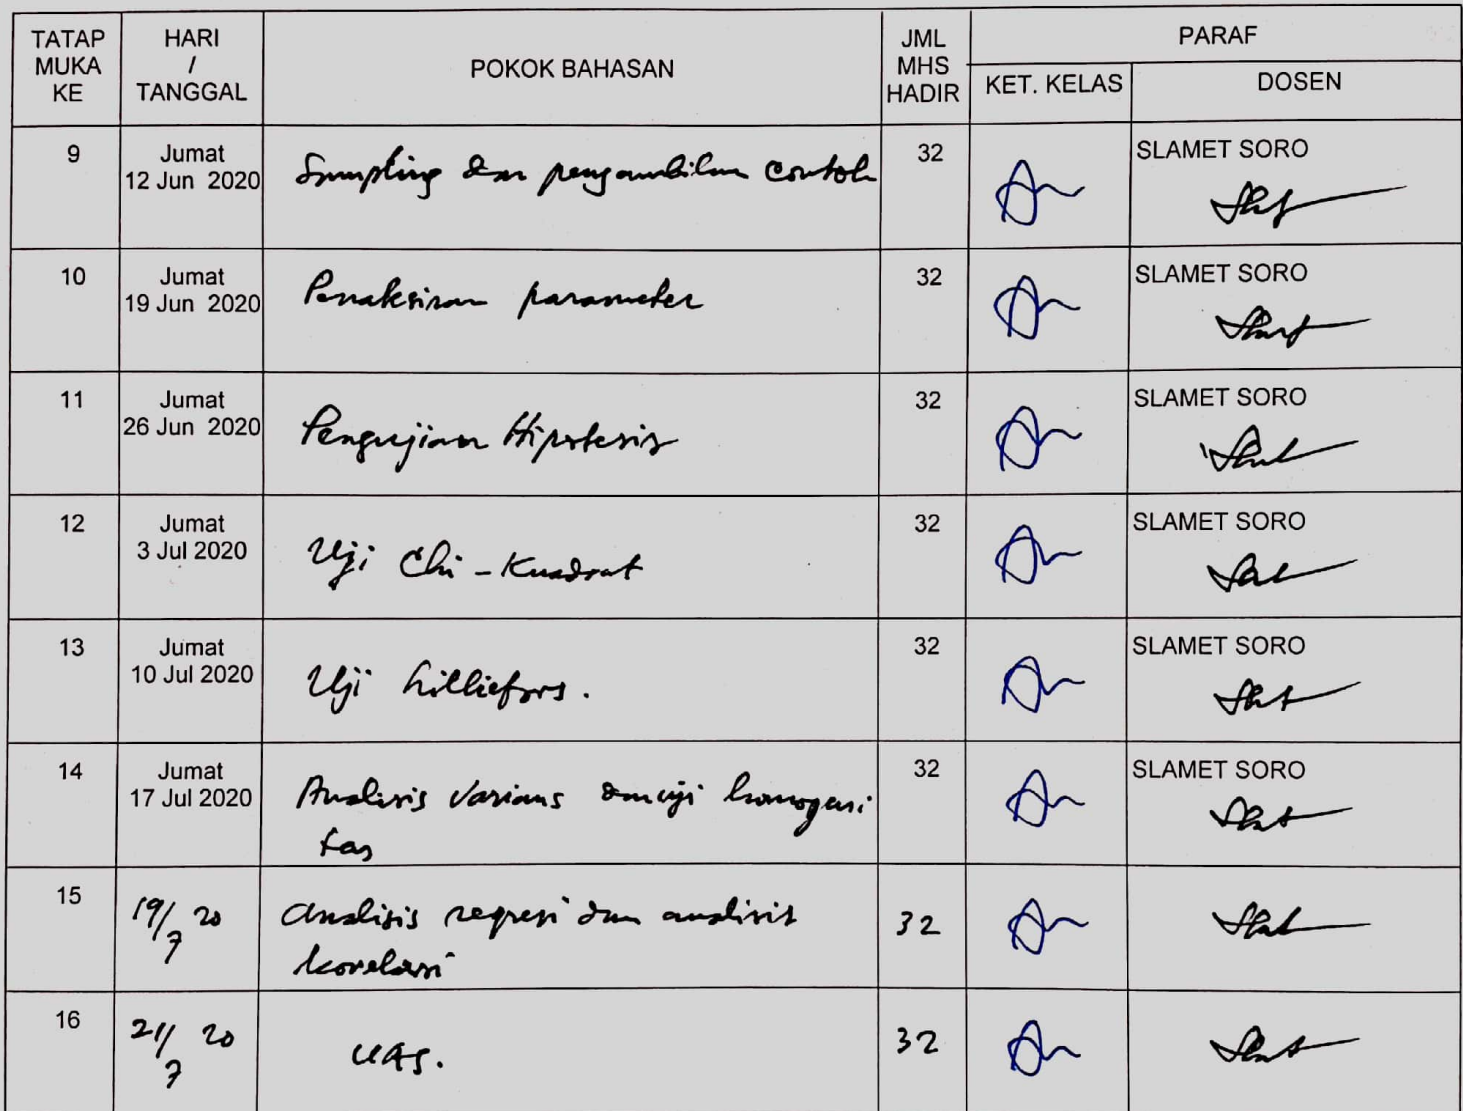 TATAP MUKA KE
HARI / TANGGAL
POKOK BAHASAN
JML MHS HADIR
PARAF
KET. KELAS
DOSEN
9
Jumat
12 Jun 2020
Sampling dan pengambilan contoh
32
SLAMET SORO
10
Jumat
19 Jun 2020
Penaksiran parameter
32
SLAMET SORO
11
Jumat
26 Jun 2020
Pengujian Hipotesis
32
SLAMET SORO
12
Jumat
3 Jul 2020
Uji Chi-Kuadrat
32
SLAMET SORO
13
Jumat
10 Jul 2020
Uji Lilliefors.
32
SLAMET SORO
14
Jumat
17 Jul 2020
Analisis Varians dan uji homogeni
tas
32
SLAMET SORO
15
19/7 20
Analisis regresi dan analisis
korelasi
32
16
21/7 20
UAS.
32